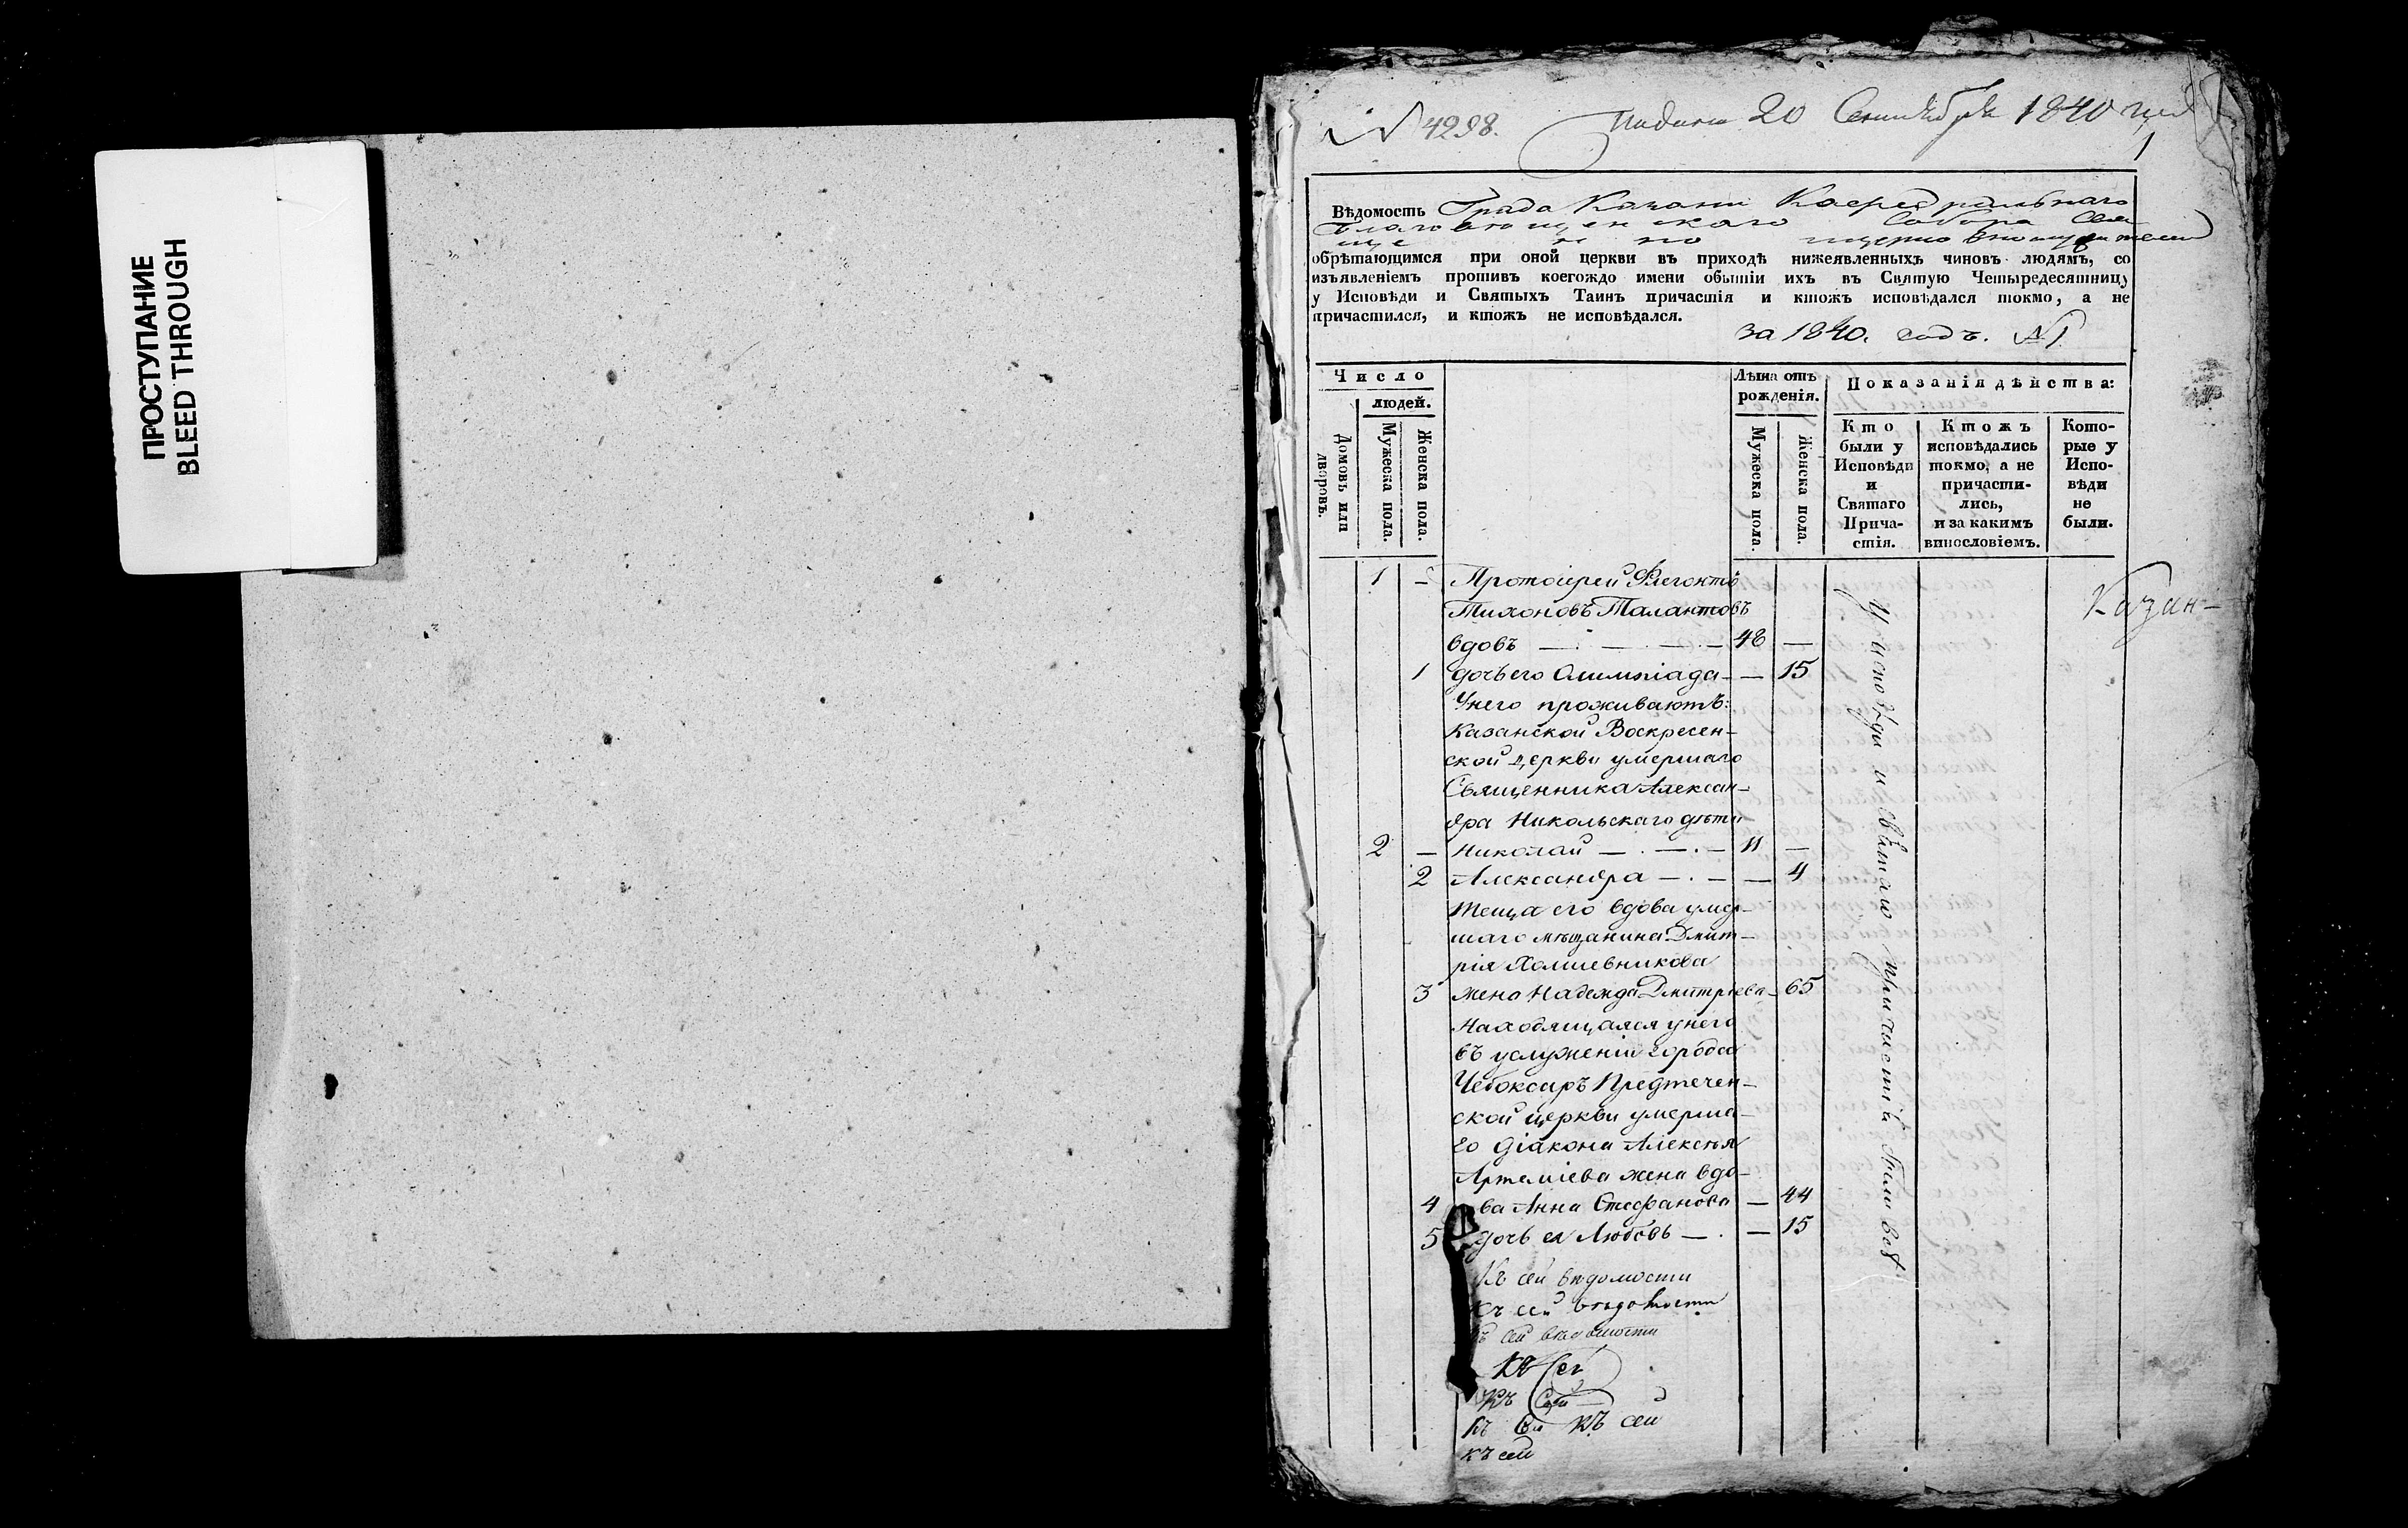 ПРОСТУПАНИЕ
BLEED THROUGH
N 4298. Подана 20 Сентября 1840 года
1
Вѣдомость Града Казани Каѳедральнаго
Благовѣщенскаго Собора
обрѣтающимся при оной церкви въ приходѣ нижеявленныхъ чиновъ людямъ, со
изъявленіемъ противъ коегождо имени обытіи ихъ въ Святую Четыредесятницу
у Исповѣди и Святыхъ Таинъ причастія и ктожъ исповѣдался токмо, а не
причастился, и ктожъ не исповѣдался.
за 1840. годъ. №1
Число
людей.
Домовъ или
дворовъ.
Мужеска пола.
Женска пола.
Лѣта отъ
рожденія.
Мужеска пола.
Женска пола.
Показанія дѣйства:
Кто
были у
Исповѣди
и
Святаго
Прича-
стія.
Ктожъ
исповѣдались
токмо, а не
причасти-
лись,
и за какимъ
винословіемъ.
Кото-
рые у
Испо-
вѣди
не
были.
1 - Протоіерей Флегонтъ
Тихоновъ Талантовъ
вдовъ 48 —
1 дочь его Олимпіада — 15
У него проживаютъ:
Казанской Воскресен-
ской церкви умершаго
Священника Алексан-
дра Никольскаго дѣти
2 — Николай 11 —
2 Александра — 4
теща его вдова умер-
шаго мѣщанина Дмит-
рія Холщевникова
3 жена Надежда Дмитріева 65
Находящаяся у него
въ услуженіи города
Чебоксаръ Предтечен-
ской церкви умерша-
го діакона Алексѣя
Артеміева жена вдо-
4 ва Анна Стефанова — 44
5 дочь ея Любовь — 15
У исповѣди и святаго причастія были всѣ
Казан-
Къ сей вѣдомости
къ сей вѣдомости
къ сей вѣдомости
Къ сей
Къ сей
Къ сей Къ сей
къ сей